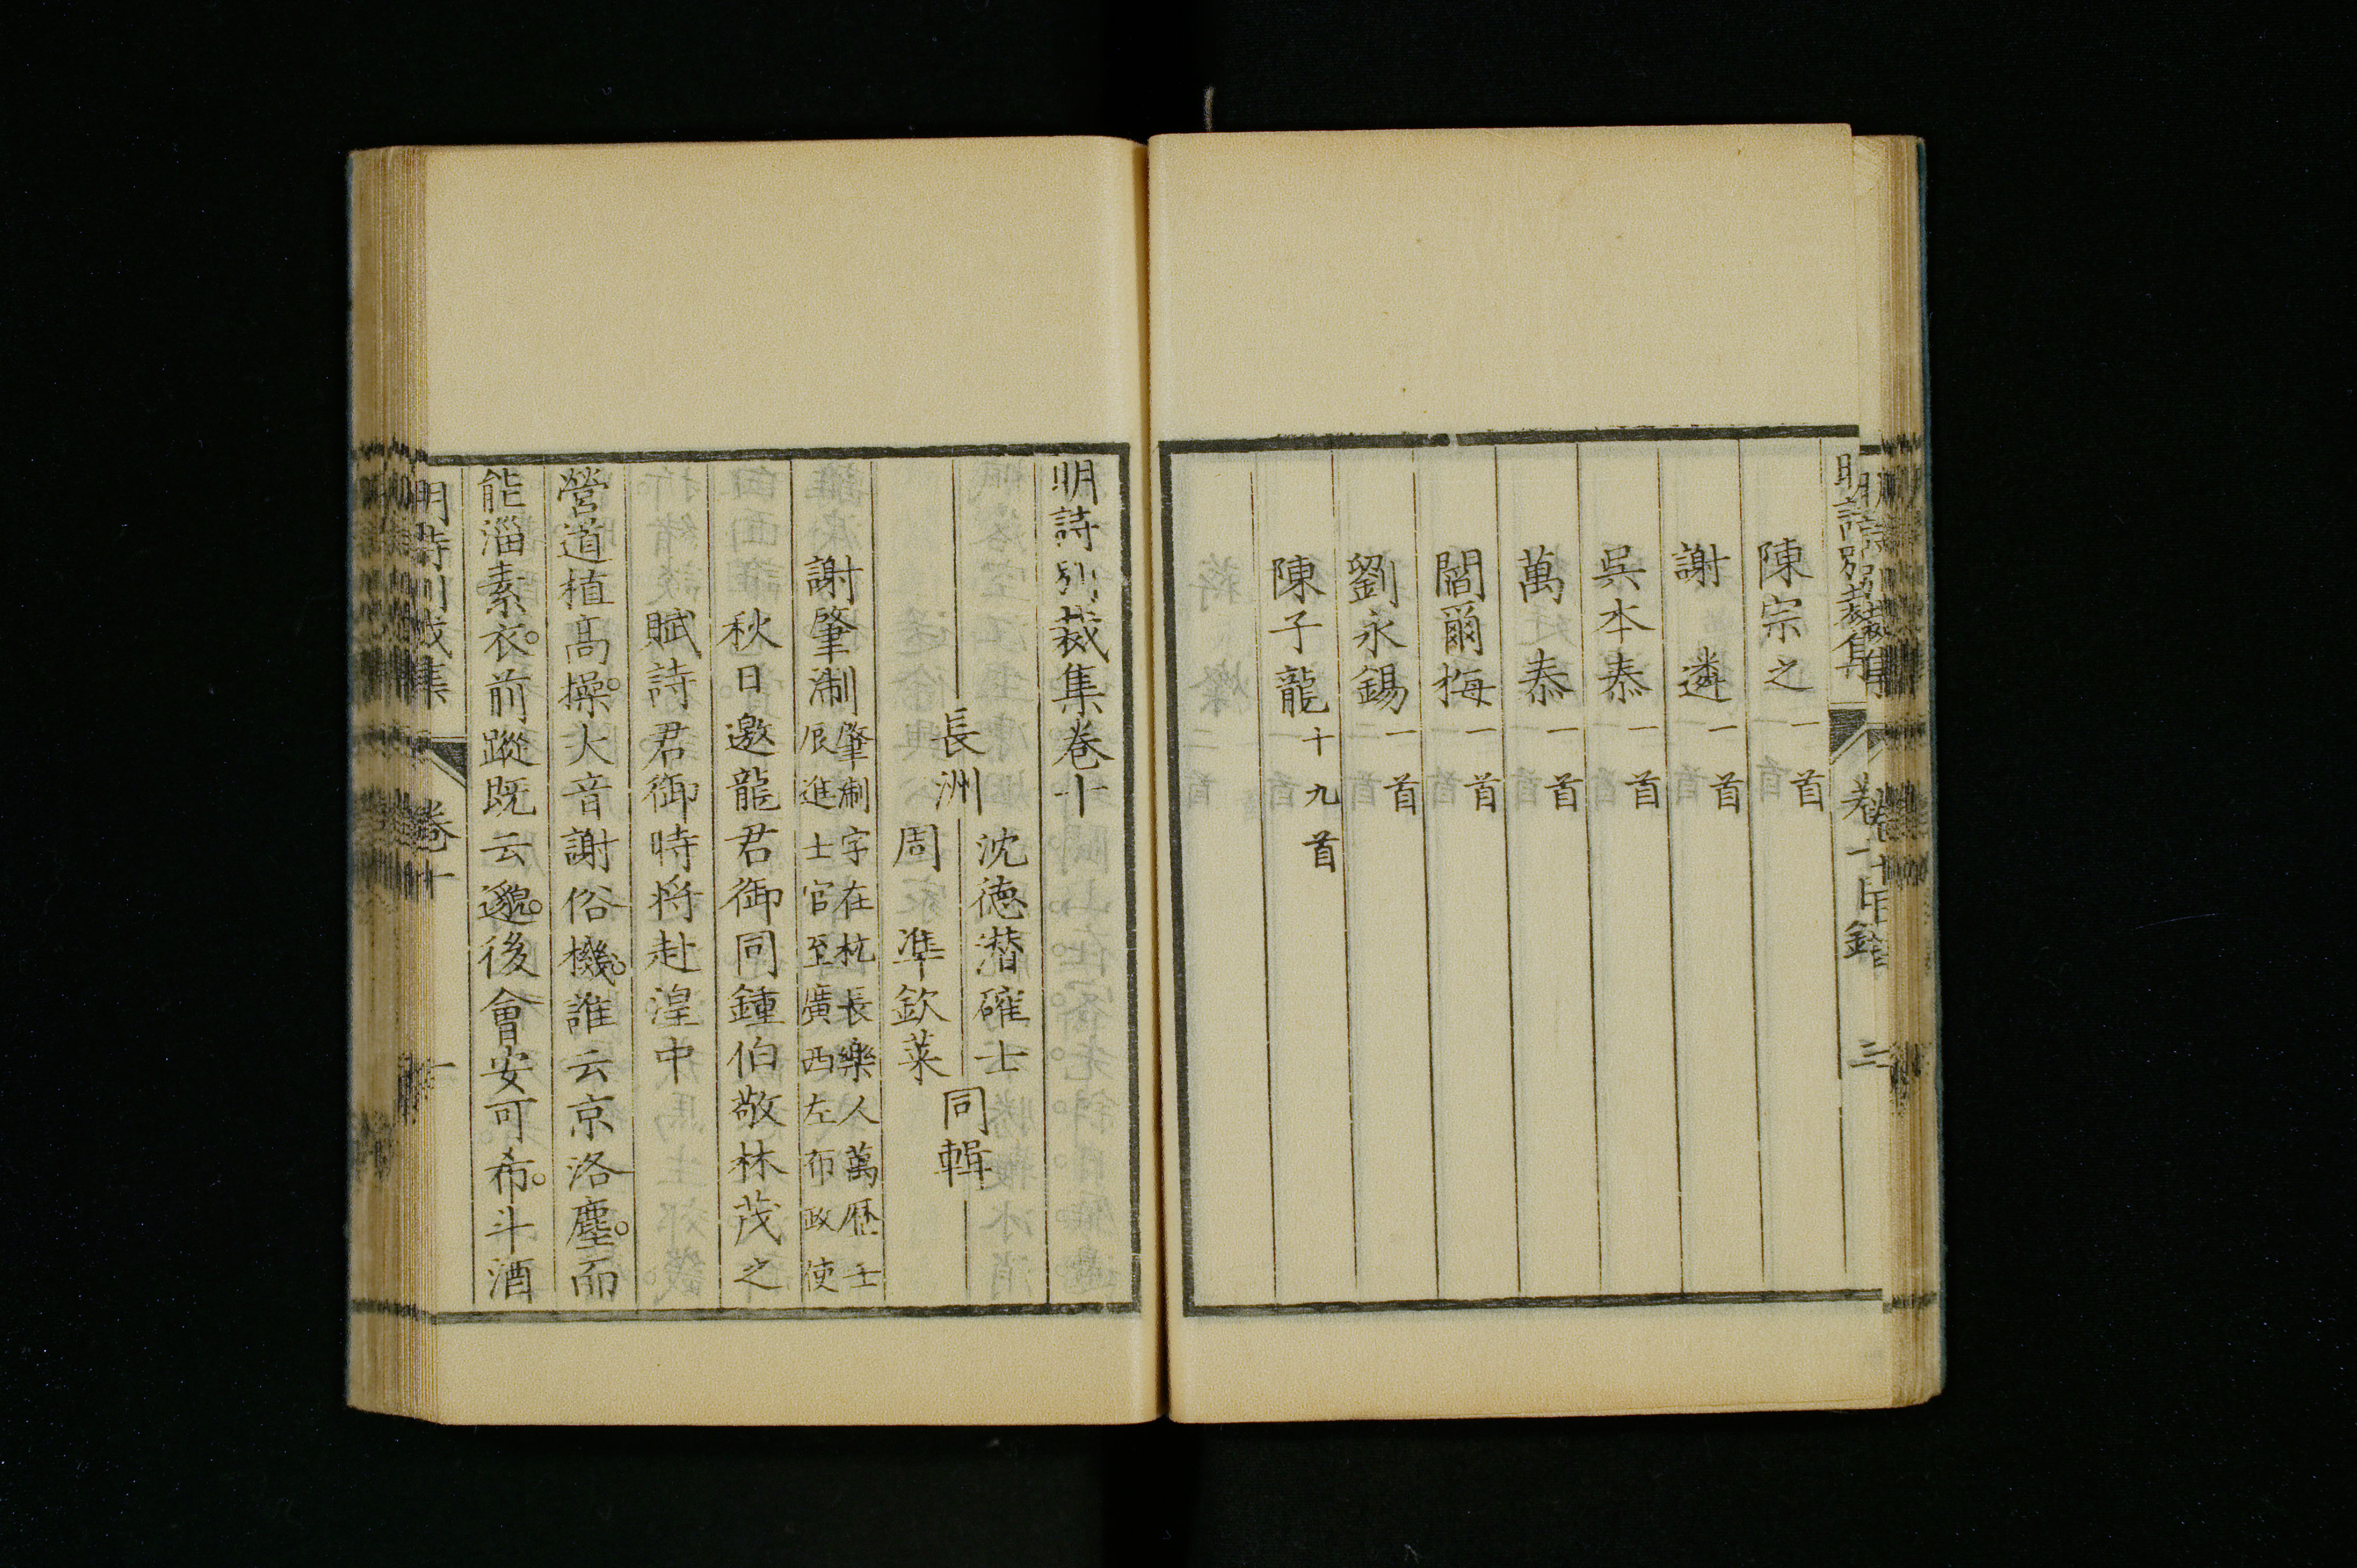 陳宗之一首
謝遴一首
吳本泰一首
萬泰一首
閻爾梅一首
劉永錫一首
陳子龍十九首
明詩別裁集卷十
長洲
沈德潛確士
周準欽萊
同輯
謝肇淛
肇淛字在杭長樂人萬歷壬
辰進士官至廣西左布政使
秋日邀龍君御同鍾伯敬林茂之
賦詩君御時將赴湟中
營道植高操。大音謝俗機。誰云京洛塵。而
能淄素衣。前蹤既云邈。後會安可希。斗酒
明詩別裁集 卷十 一